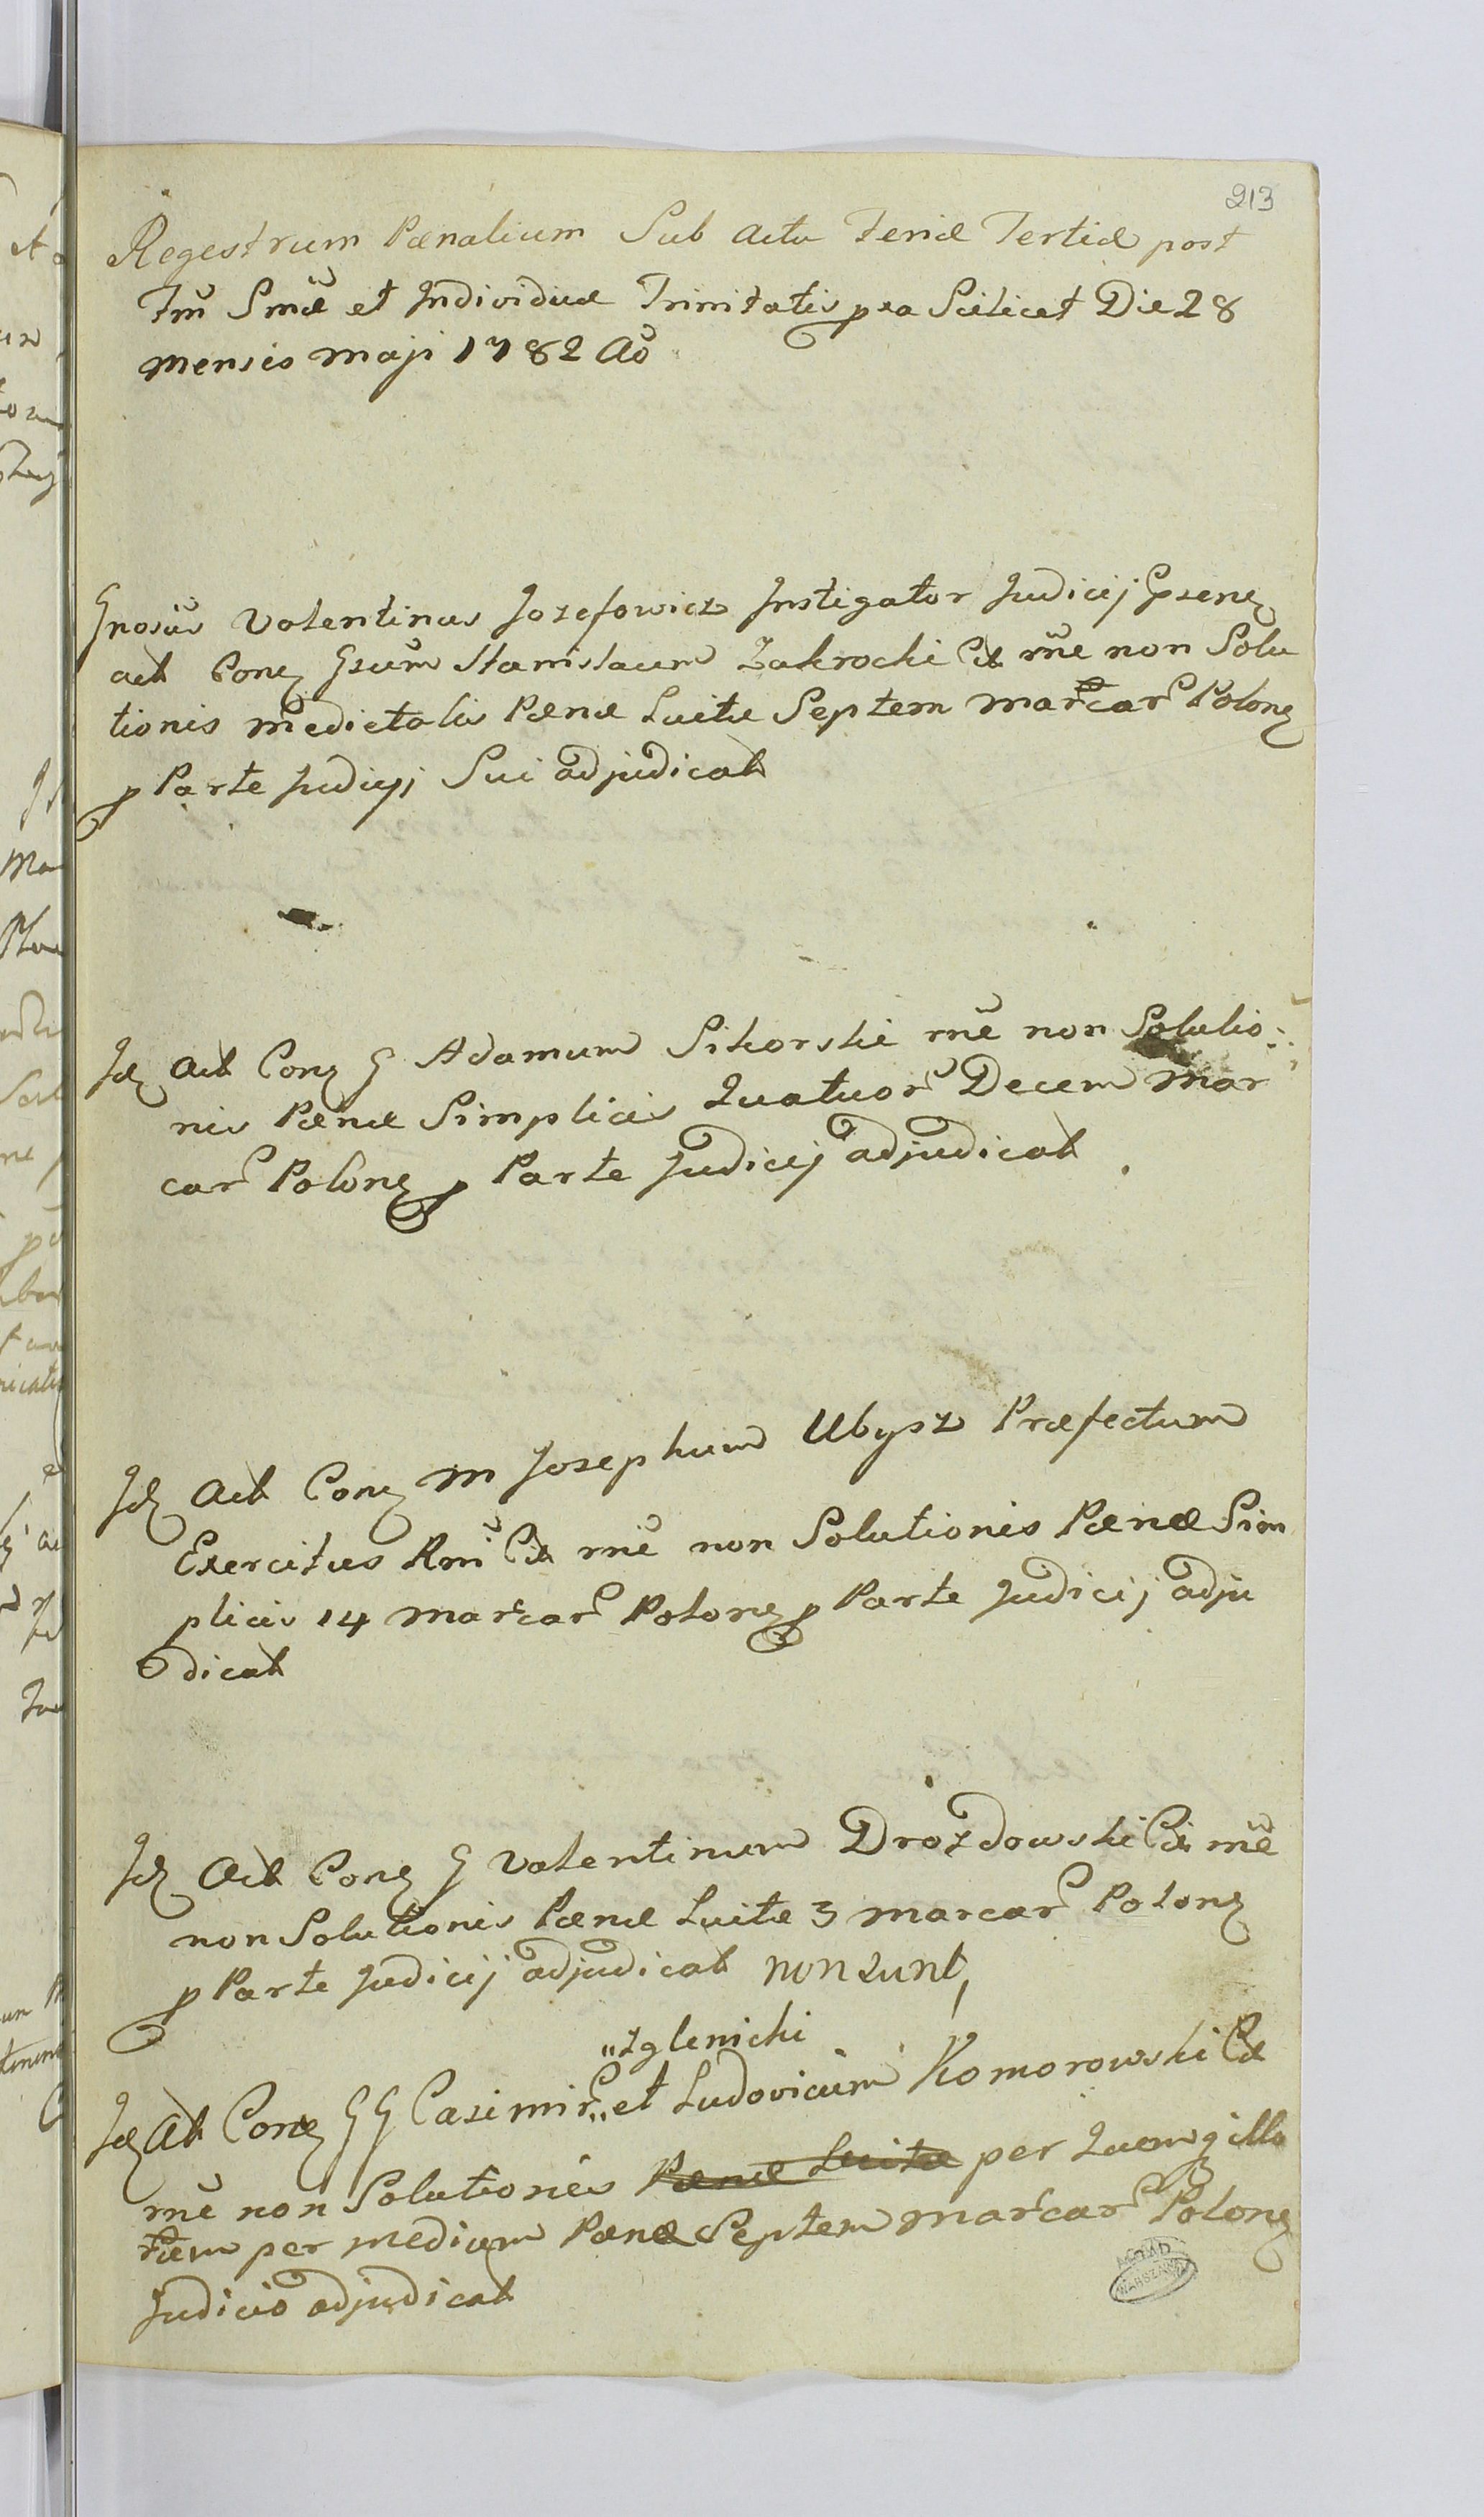 213
Regestrum Pænalium Sub Actu Feriæ Tertiæ post
Ftũ Smæ et Individuæ Trinitatis pxa Scilicet Die 28
Mensis Maji 1782 Aõ
Gnosus Valentinus Jozefowicz Instigator Judicij Psens
act Con Gsum Stanislaum Zakrocki Ct rñe non Solu
tionis medietatis Pænæ Luitæ Septem Marcar Polon
p Parte Judicij Sui adjudicat
Id Act Con G Adamum Sikorski rñe non Solutio
nis Pænæ Simplicis Quatuor Decem Mar
car Polon p Parte Judicij adjudicat
Id Act Con M Josephum Ubysz Præfectum
Exercitus Rni Ct rñe non Solutionis Pænæ Sim
plicis 14 Marcar Polon p Parte Judicij adju
dicat
Id Act Con G Valentinum Drozdowski Ct rñe
non Solutionis Pænæ Luitæ 3 Marcar Polon
p Parte Judicij adjudicat non sunt
"Zglenicki
Id Act Con GG Casimir" et Ludovicum Komorowski Ct
rñe non Solutionis Pænæ Luitæ per Quemq illo
rum per medium Pænæ Septem Marcar Polon
Judicio adjudicat
AGAD
WARSZAWA